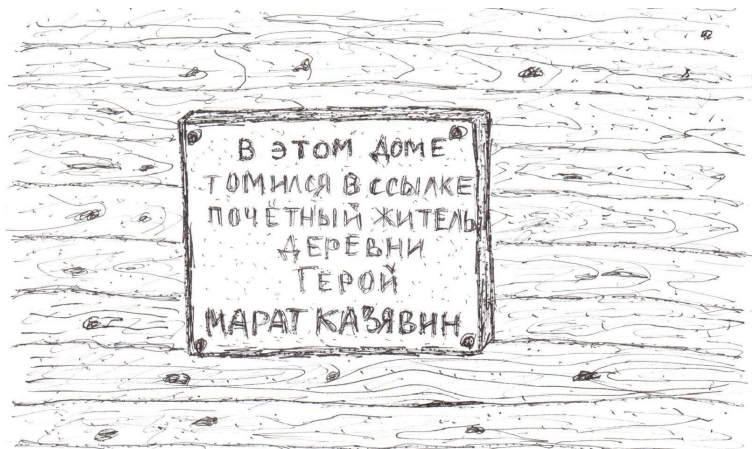 В ЭТОМ ДОМЕ
ТОМИЛСЯ В ССЫЛКЕ
ПОЧЁТНЫЙ ЖИТЕЛЬ
ДЕРЕВНИ
ГЕРОЙ
МАРАТ КАЗЯВИН